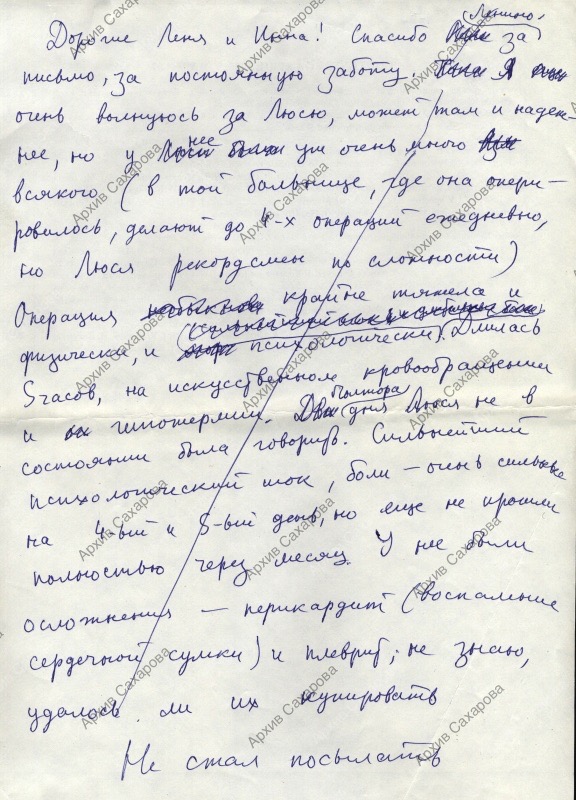 Дорогие Леня и Инна! Спасибо за Ленино
письмо, за постоянную заботу. Я
очень волнуюсь за Люсю, может там и надеж-
нее, но у нее уж очень много
всякого (в той больнице, где она опери-
ровалось, делают до 4-х операций ежедневно,
но Люся рекордсмен по сложности)
Операция крайне тяжела и
физически, и психологически). Длилась
5 часов, на искусственном кровообращении
и гипотермии. Полтора дня Люся не в
состоянии была говорить. Сильнейший
психологический шок, боли – очень сильные
на 4-ый и 5-ый день, но еще не прошли
полностью через месяц. У нее были
осложнения – перикардит (воспаление
сердечной сумки) и плеврит; не знаю,
удалось ли их купировать
Не стал посылать
Архив Сахарова